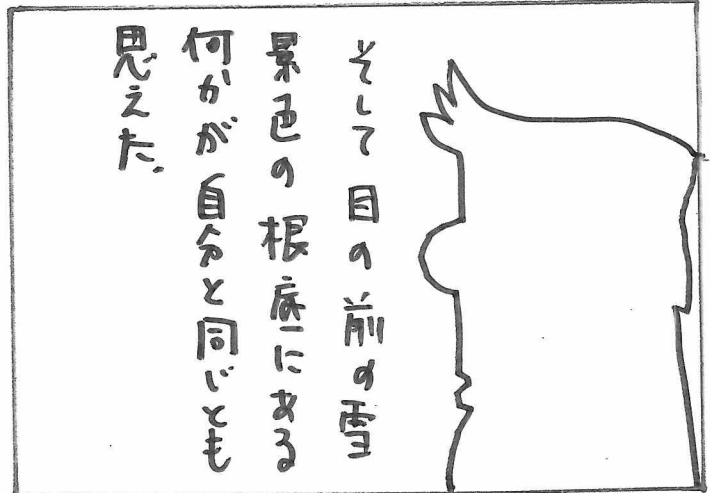 そして目の前の雪
景色の根底にある
何かが自分と同じとも
思えた、